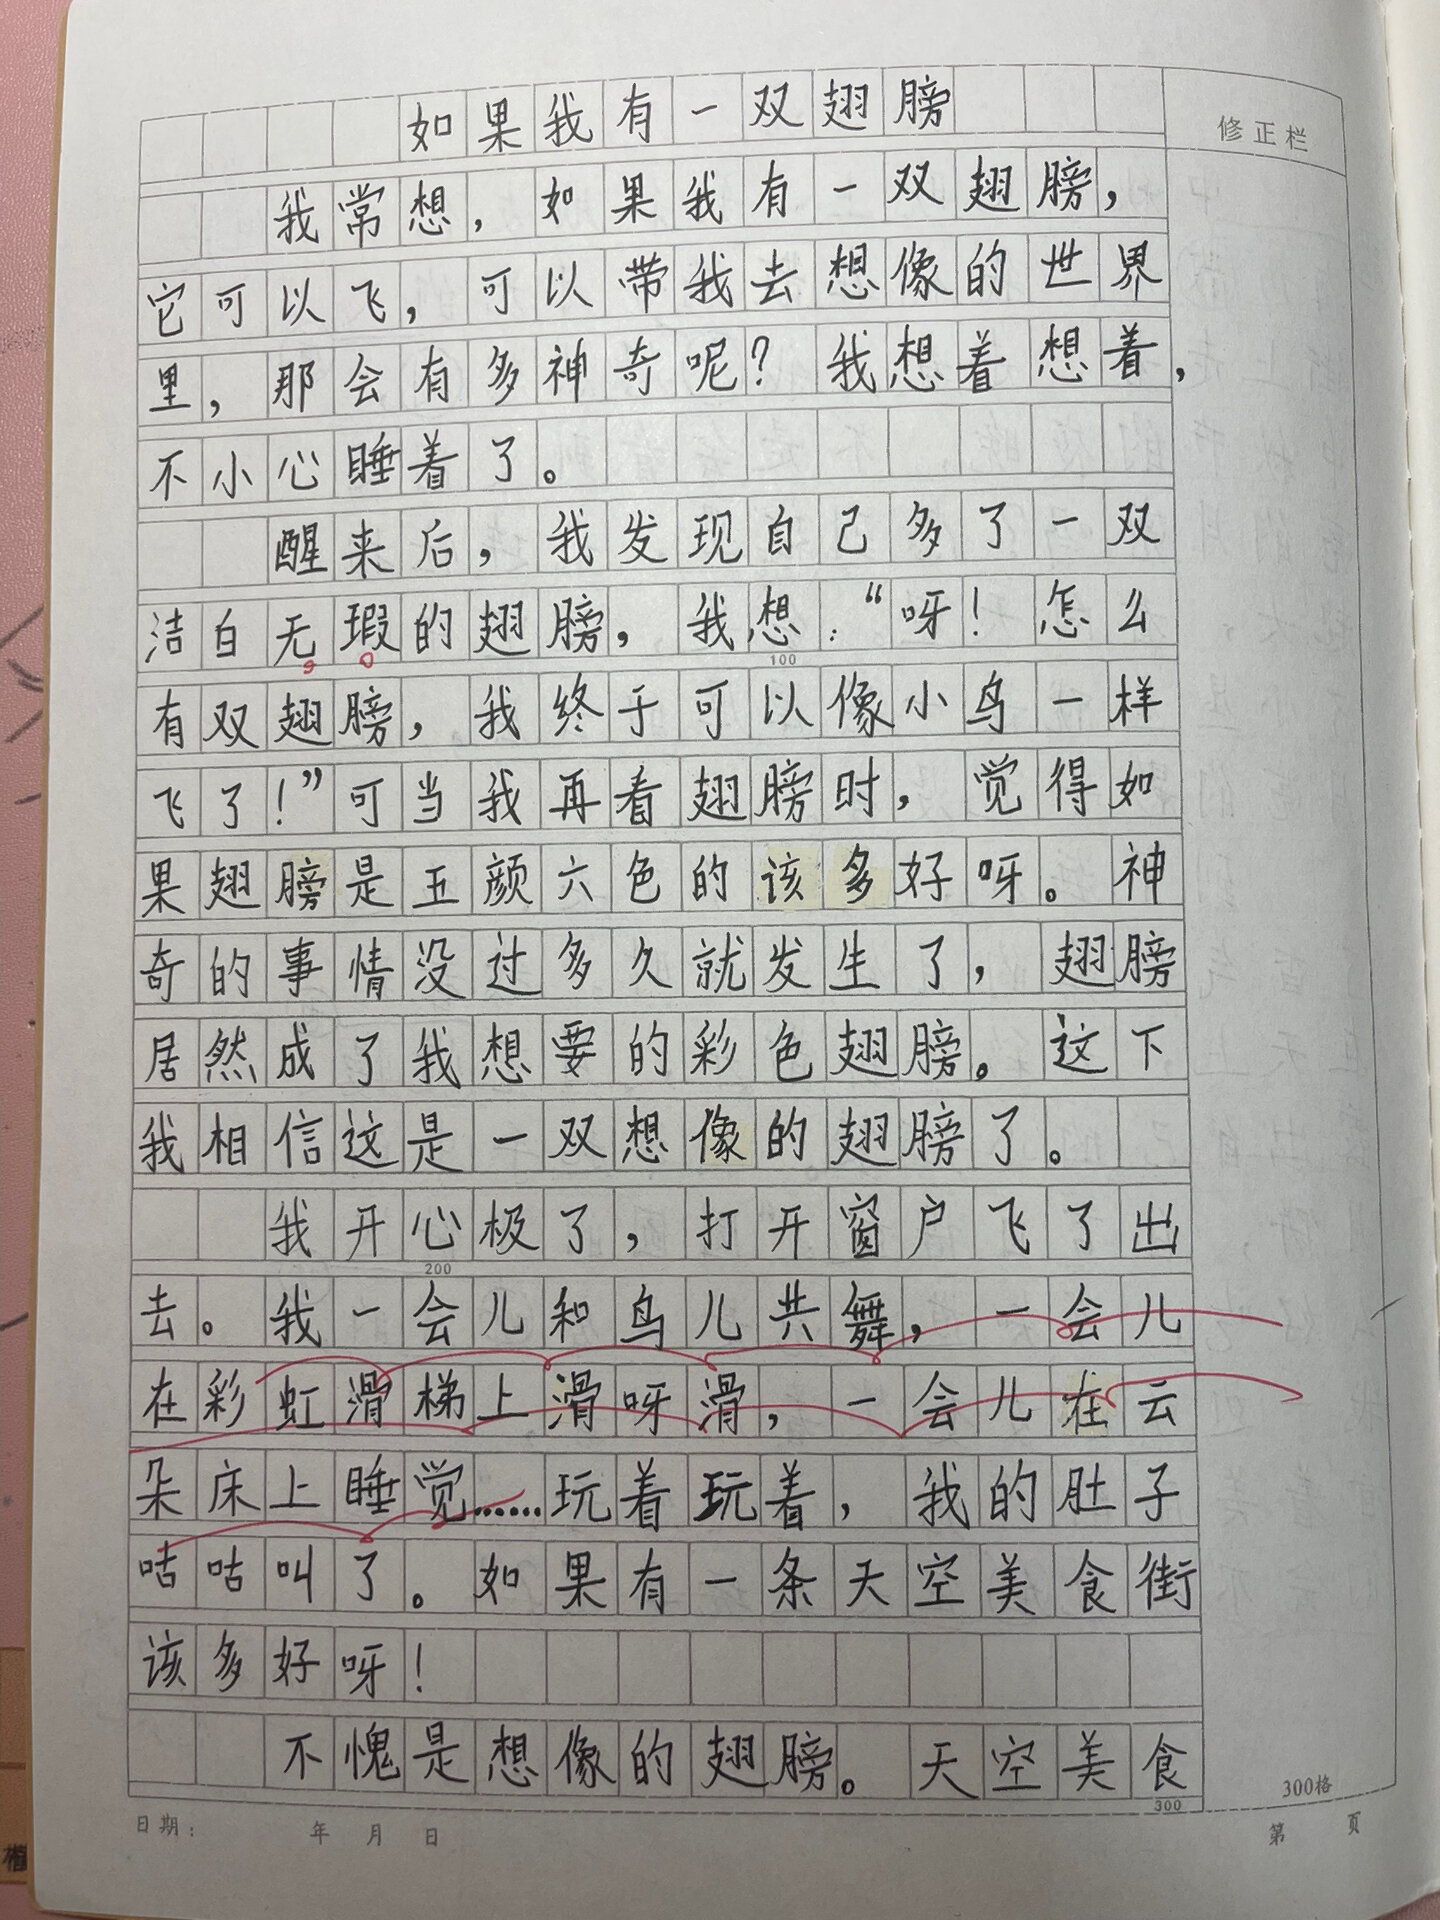 如果我有一双翅膀
修正栏
我常想，如果我有一双翅膀，
它可以飞，可以带我去想像的世界
里，那会有多神奇呢？我想着想着，
不小心睡着了。
醒来后，我发现自己多了一双
洁白无瑕的翅膀，我想：“呀！怎么
100
有双翅膀，我终于可以像小鸟一样
飞了！”可当我再看翅膀时，觉得如
果翅膀是五颜六色的该多好呀。神
奇的事情没过多久就发生了，翅膀
居然成了我想要的彩色翅膀。这下
我相信这是一双想像的翅膀了。
我开心极了，打开窗户飞了出
200
去。我一会儿和鸟儿共舞，一会儿
在彩虹滑梯上滑呀滑，一会儿在云
朵床上睡觉……玩着玩着，我的肚子
咕咕叫了。如果有一条天空美食街
该多好呀！
不愧是想像的翅膀。天空美食
300
300格
日期： 年 月 日
第 页